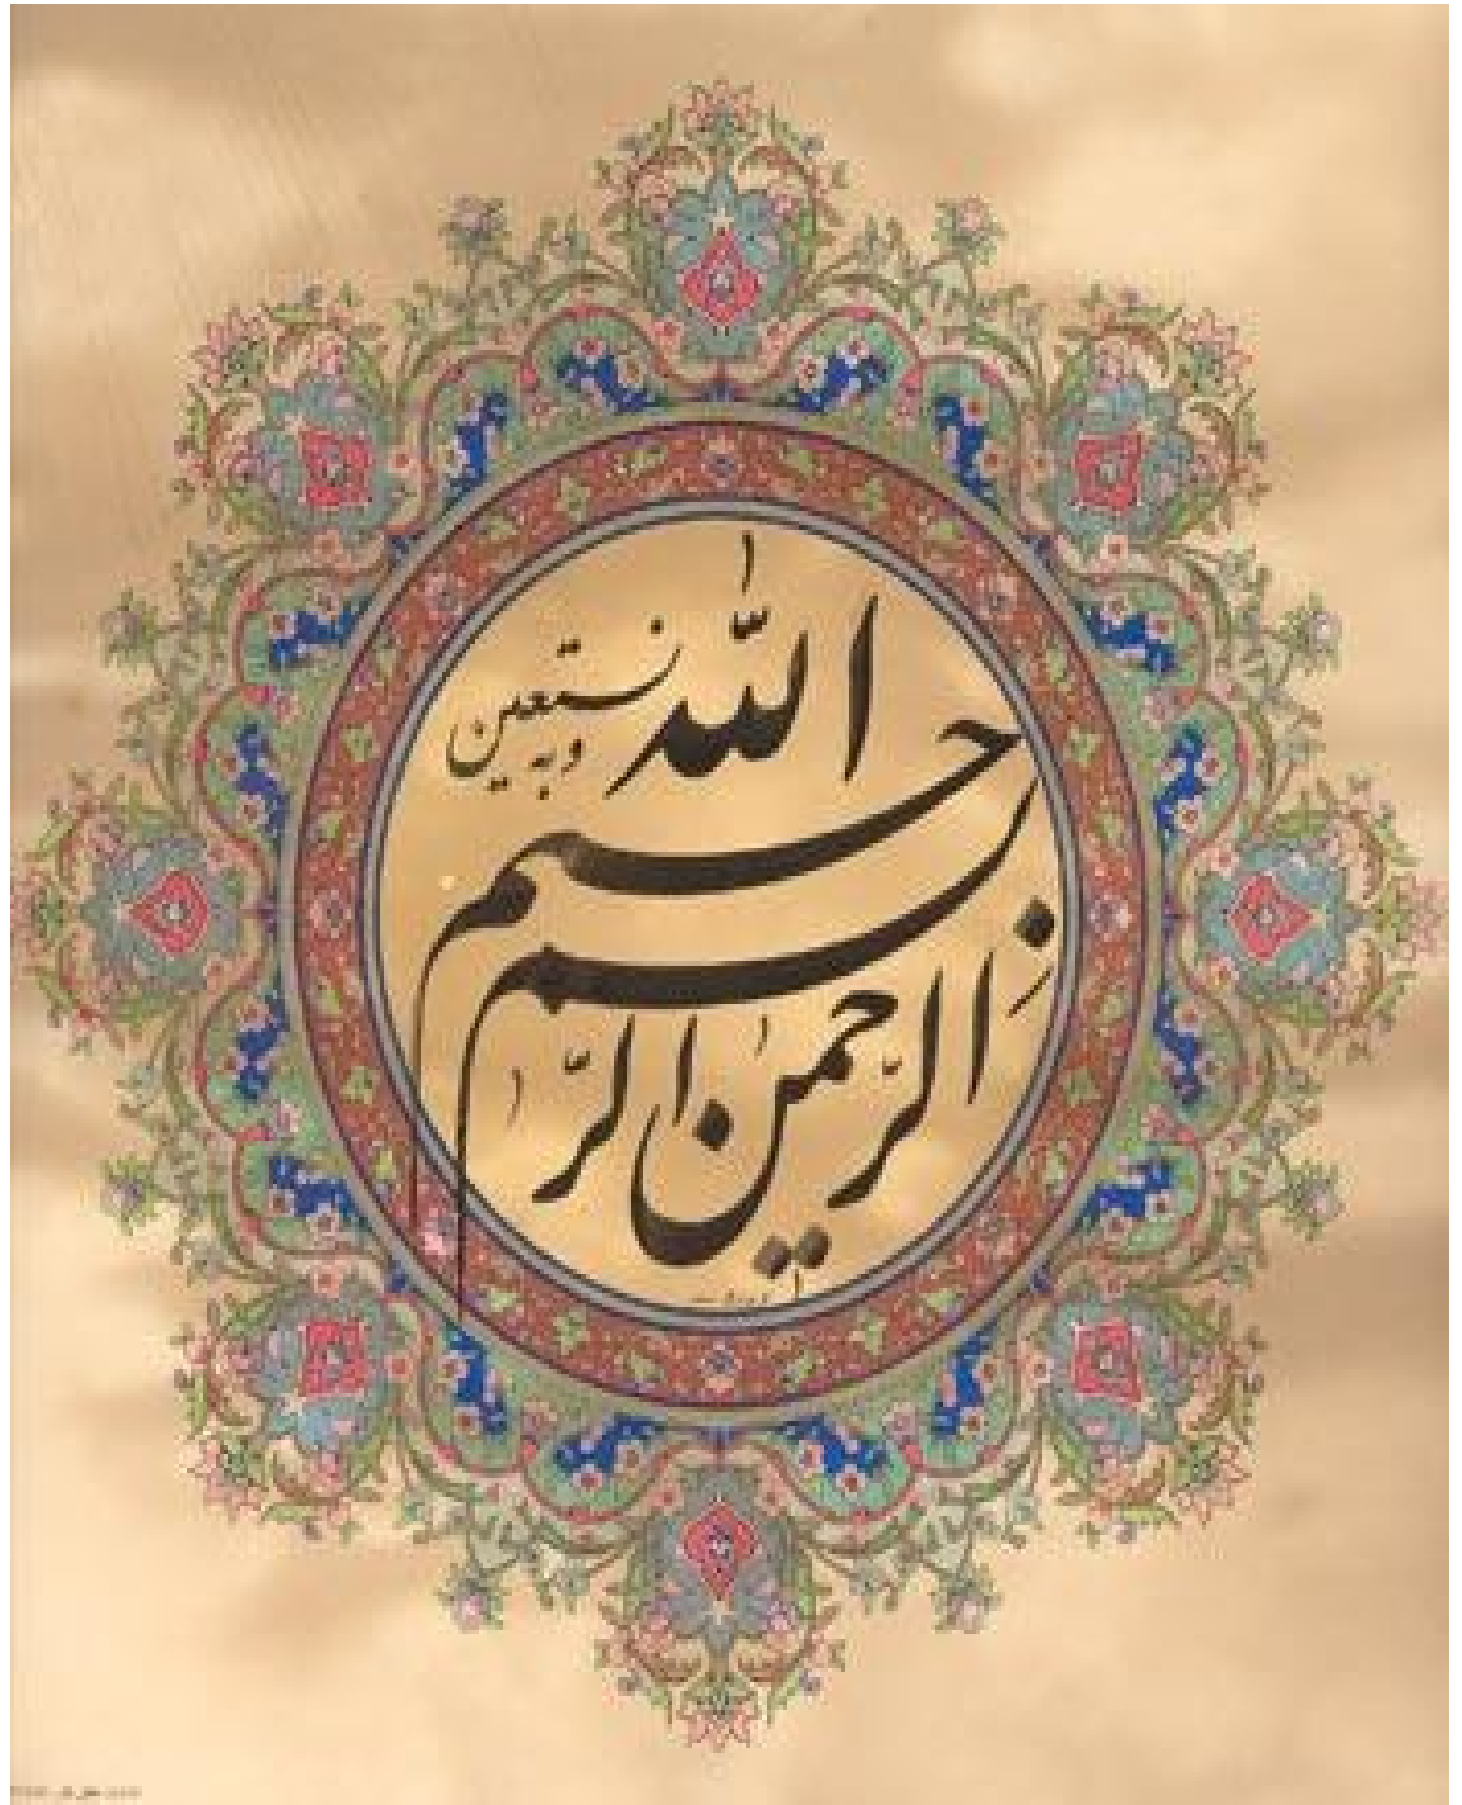 بسم الله الرحمن الرحیم
و به نستعین